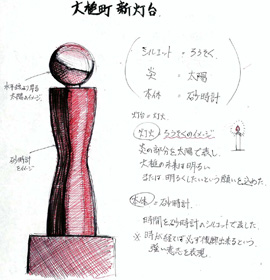 大槌町 新灯台
シルエット = ろうそく
炎 = 太陽
本体 = 砂時計
水平線より昇る
太陽のイメージ
砂時計
をイメージ
灯台 = 灯火
灯火 = ろうそくのイメージ
炎の部分を太陽で表し
大槌の未来は明るい
または 明るくしたいという願いを込めた。
本体 = 砂時計。
時間を砂時計のシルエットで表した。
※時が経てば必ず復興出来るという、
強い意志を表現。